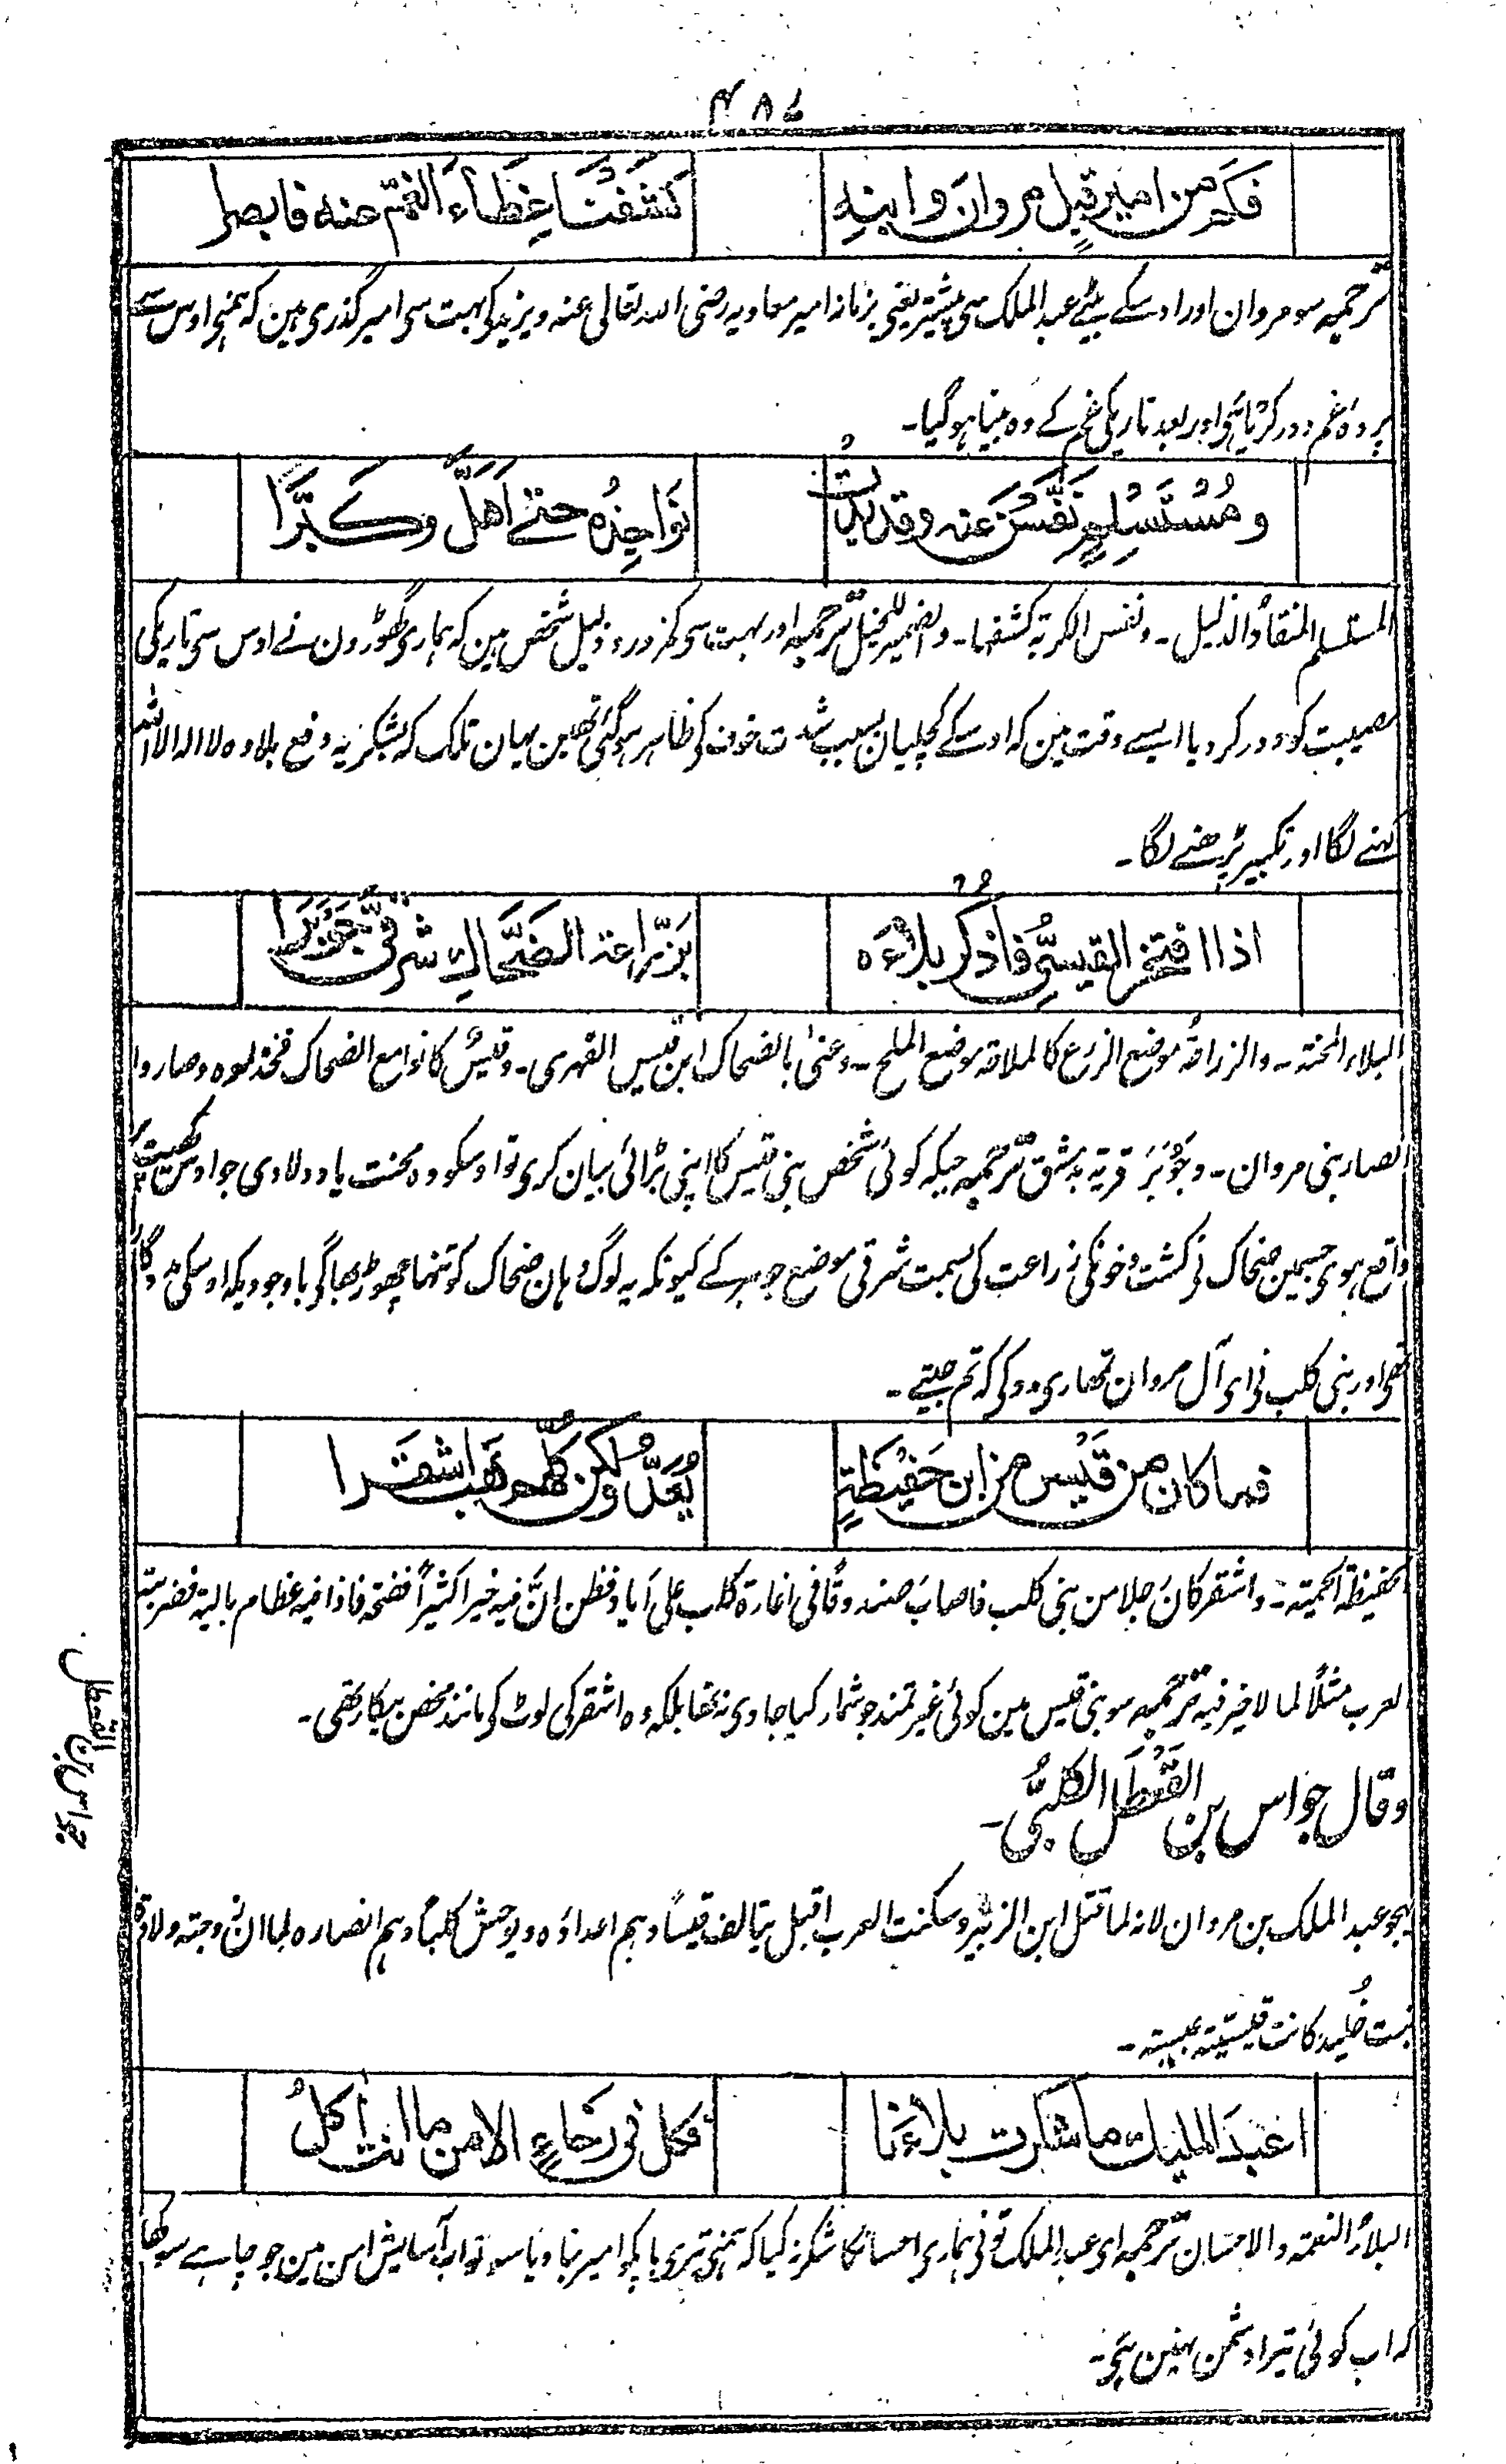 ۴۸۶
فكم من امير قبل مروان وابنه كشفنا غطاء الغم عنه فابصرا
ترجمہ سو مروان اور اوسکے بیٹے عبد الملک سی پیشتر یعنی بزمانہ امیر معاویہ رضی اللہ تعالی عنہ ویزید کی بہت سی امیر گذری ہین کہ ہمنی اوس سے
پردۂ غم دور کردیا ہی اور بعد تاریکی غم کے وہ بینا ہوگیا۔
ومستسلم نفسن عنه وقد بدت نواجذه حتے اهل وكبرا
المستسلم المنقاد والذلیل۔ ونفس الکربۃ کشفہا۔ والضمیر للخیل ترجمہ اور بہت سی کمزور وذلیل شخص ہین کہ ہماری گھوڑون نے اوس سی تاریکی
مصیبت کو دور کردیا ایسے وقت مین کہ اوسکے کچلیان بسبب شدت خوف کی ظاہر ہوگئی تھین یہان تلک کہ بشکریہ دفع بلا وہ لا الہ الا اللہ
کہنے لگا اور تکبیر پڑھنے لگا۔
اذا افتخر القيسي فاذكر بلاءه بزراعة الضحاك شرقي جوبرا
البلاء المحنۃ۔ والزراعۃ موضع الزرع کالملاحۃ موضع الملح۔ وعنی بالضحاک ابن قیس الفہری۔ وقیس کانوا مع الضحاک فخذلوہ وصاروا
انصار بنی مروان۔ وجَوْبَر قریۃ بدمشق ترجمہ جبکہ کوئی شخص بنی قیس کا اپنی بڑائی بیان کری تو اوسکو وہ محنت یاد دلادی جو اوس کھیت
واقع ہوی جسمین ضحاک نی کشت وخونکی زراعت کی سمت شرقی موضع جوبر کے کیونکہ یہ لوگ وہان ضحاک کو تنہا چھوڑ بھاگی باوجودیکہ اوسکی مددگار
تھی اور بنی کلب نی ای آل مروان تمھاری مدد کی کہ تم جیتے۔
فما كان من قيس من ابن حفيظة يعد ولكن كلهم نهب اشقرا
الحفیظۃ الحمیۃ۔ واشقر کان رجلا من بنی کلب فاصاب صندوقًا فی اغارۃ کلاب علی ایاد فظن انّ فیہ خیرا کثیراً ففتحہ فاذا فیہ عظام بالیۃ فضربتہ
العرب مثلًا لما لا خیر فیہ ترجمہ سو بنی قیس مین کوئی غیرتمند جو شمار کیا جاوی نہ تھا بلکہ وہ اشقر کی لوٹ کی مانند محض بیکار تھی۔
وقال جواس بن القعطل الكلبي۔
جواس بن القعطل
یہجو عبد الملک بن مروان لانہ لما قتل ابن الزبیر وسکنت العرب اقبل یتالف قیسًا وہم اعداؤہ ویوحش کلبًا وہم انصارہ لما ان زوجتہ ولادۃ
بنت خلید کانت قیسیۃ عبسیۃ۔
اعبد المليك ما شكرت بلاءنا فكل في رخاء الامن ما انت اكل
البلاء النعمۃ والاحسان ترجمہ ای عبد الملک تونی ہماری احسانکا شکر نہ کیا کہ ہمنی تیری باپکو امیر بنا دیا سو تو اب آسایش امن مین جو چاہے سو کھا
کہ اب کوئی تیرا دشمن نہین ہی۔